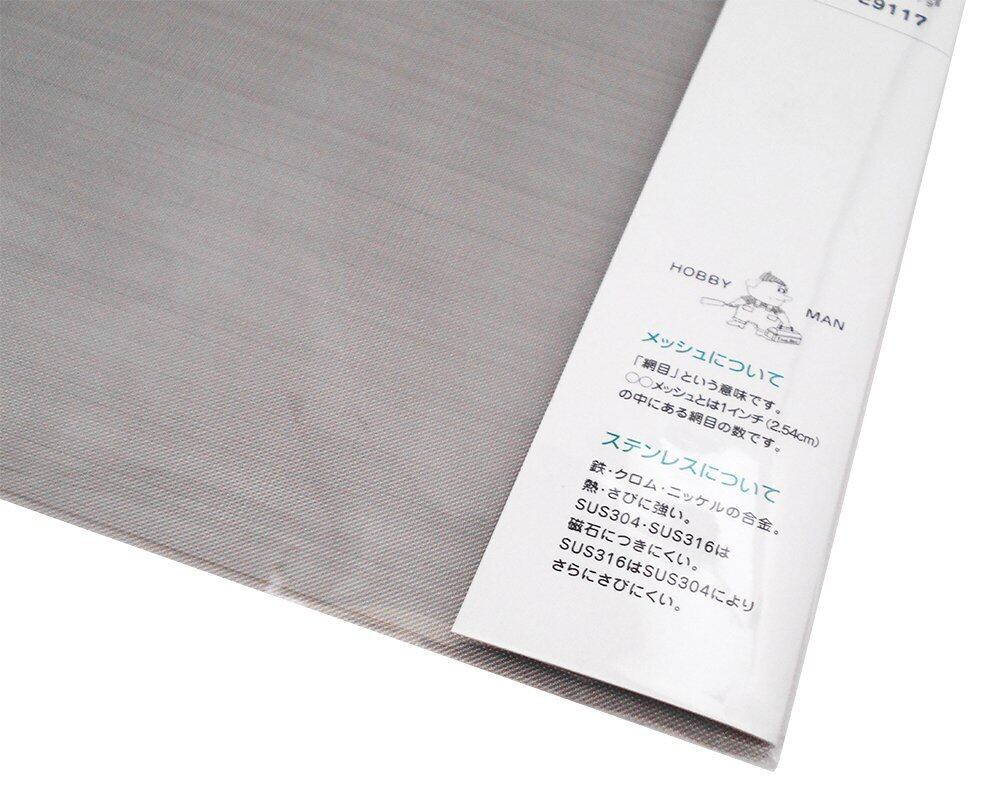 E9117
HOBBY MAN
メッシュについて
「網目」という意味です。
○○メッシュとは1インチ(2.54cm)
の中にある網目の数です。
ステンレスについて
鉄・クロム・ニッケルの合金。
熱・さびに強い。
SUS304・SUS316は
磁石につきにくい。
SUS316はSUS304により
さらにさびにくい。